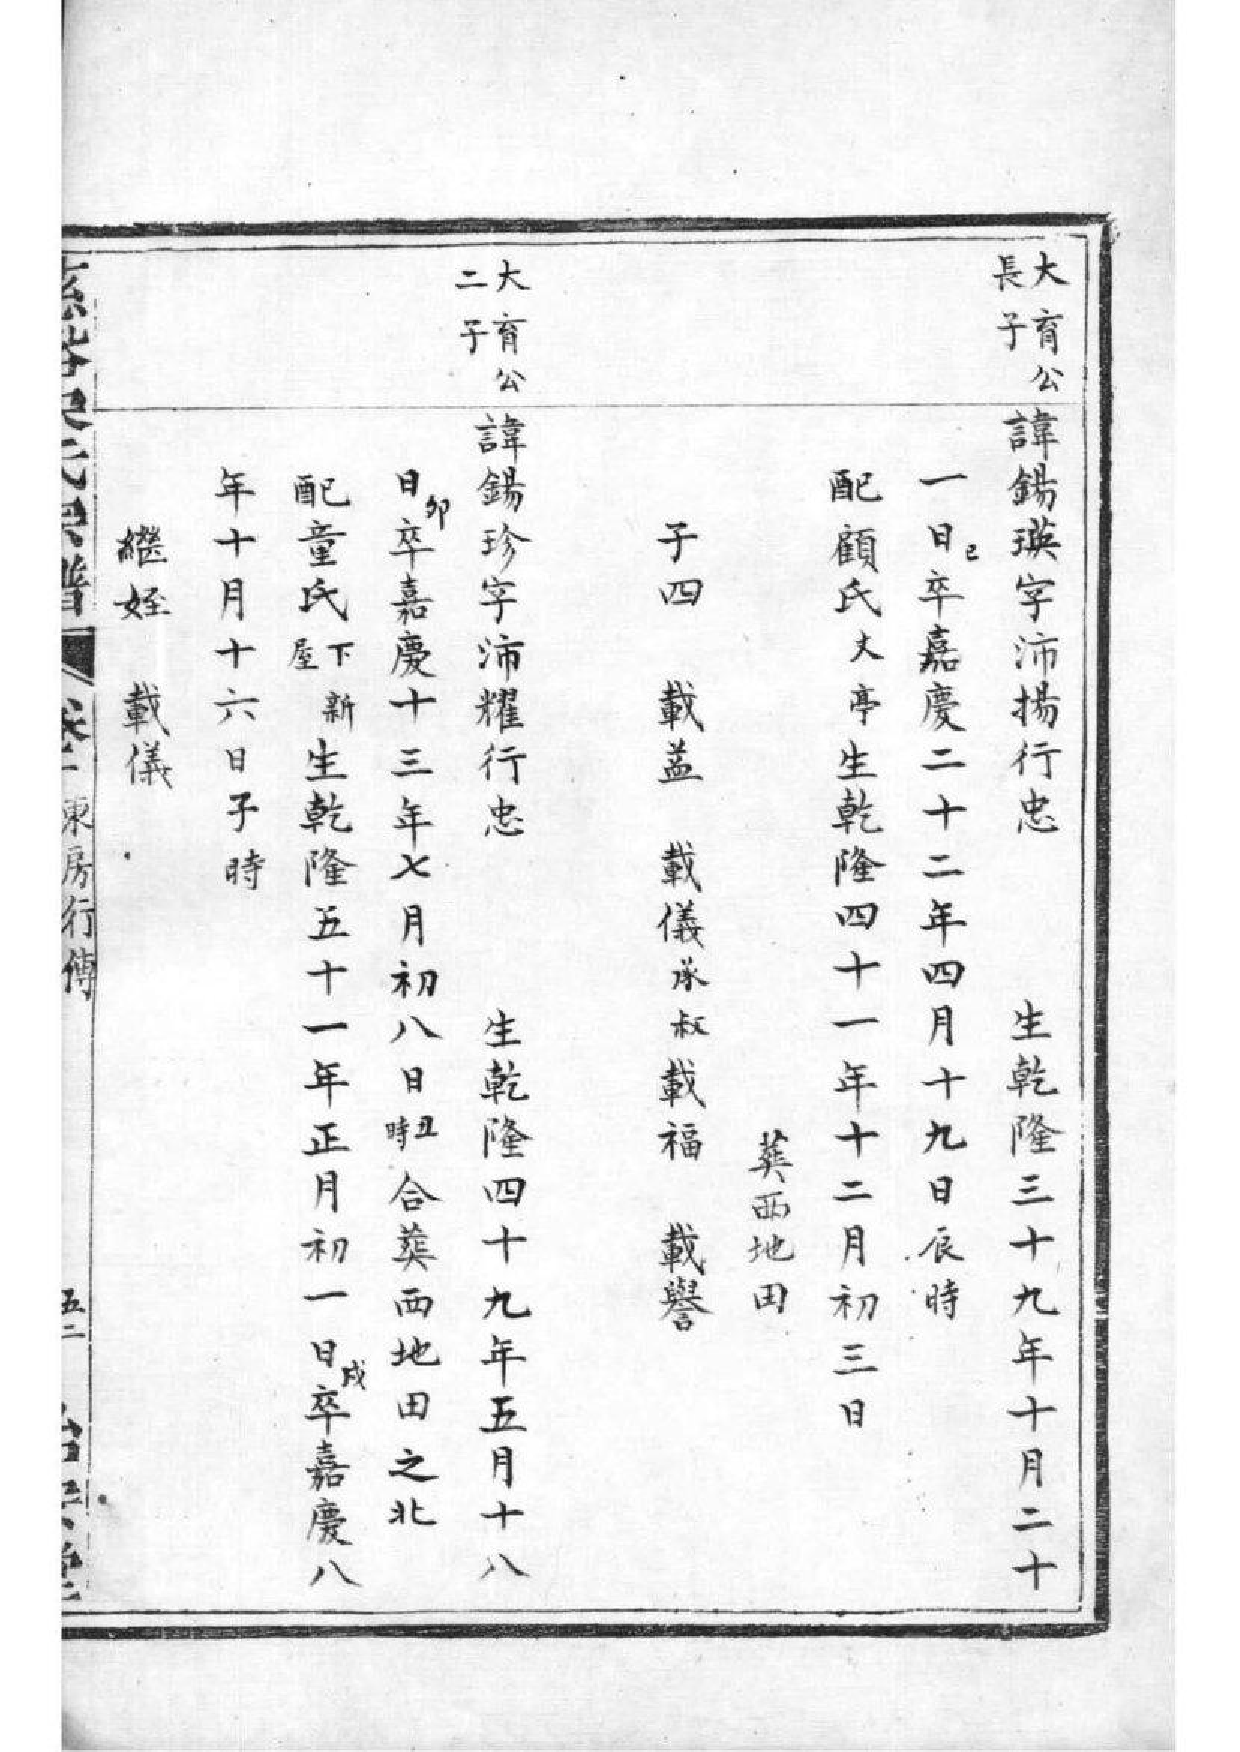 大育公
長子
諱錫瑛字沛揚行忠　生乾隆三十九年十月二十
一日巳卒嘉慶二十二年四月十九日辰時
配顧氏丈亭生乾隆四十一年十二月初三日
葬西地田
子四　載蓋　載儀承叔載福　載譽
大育公
二子
諱錫珍字沛耀行忠　生乾隆四十九年五月十八
日卯卒嘉慶十三年七月初八日丑時合葬西地田之北
配童氏下新屋生乾隆五十一年正月初一日戌卒嘉慶八
年十月十六日子時
繼姪　載儀
氏宗譜
東房行傳
五二